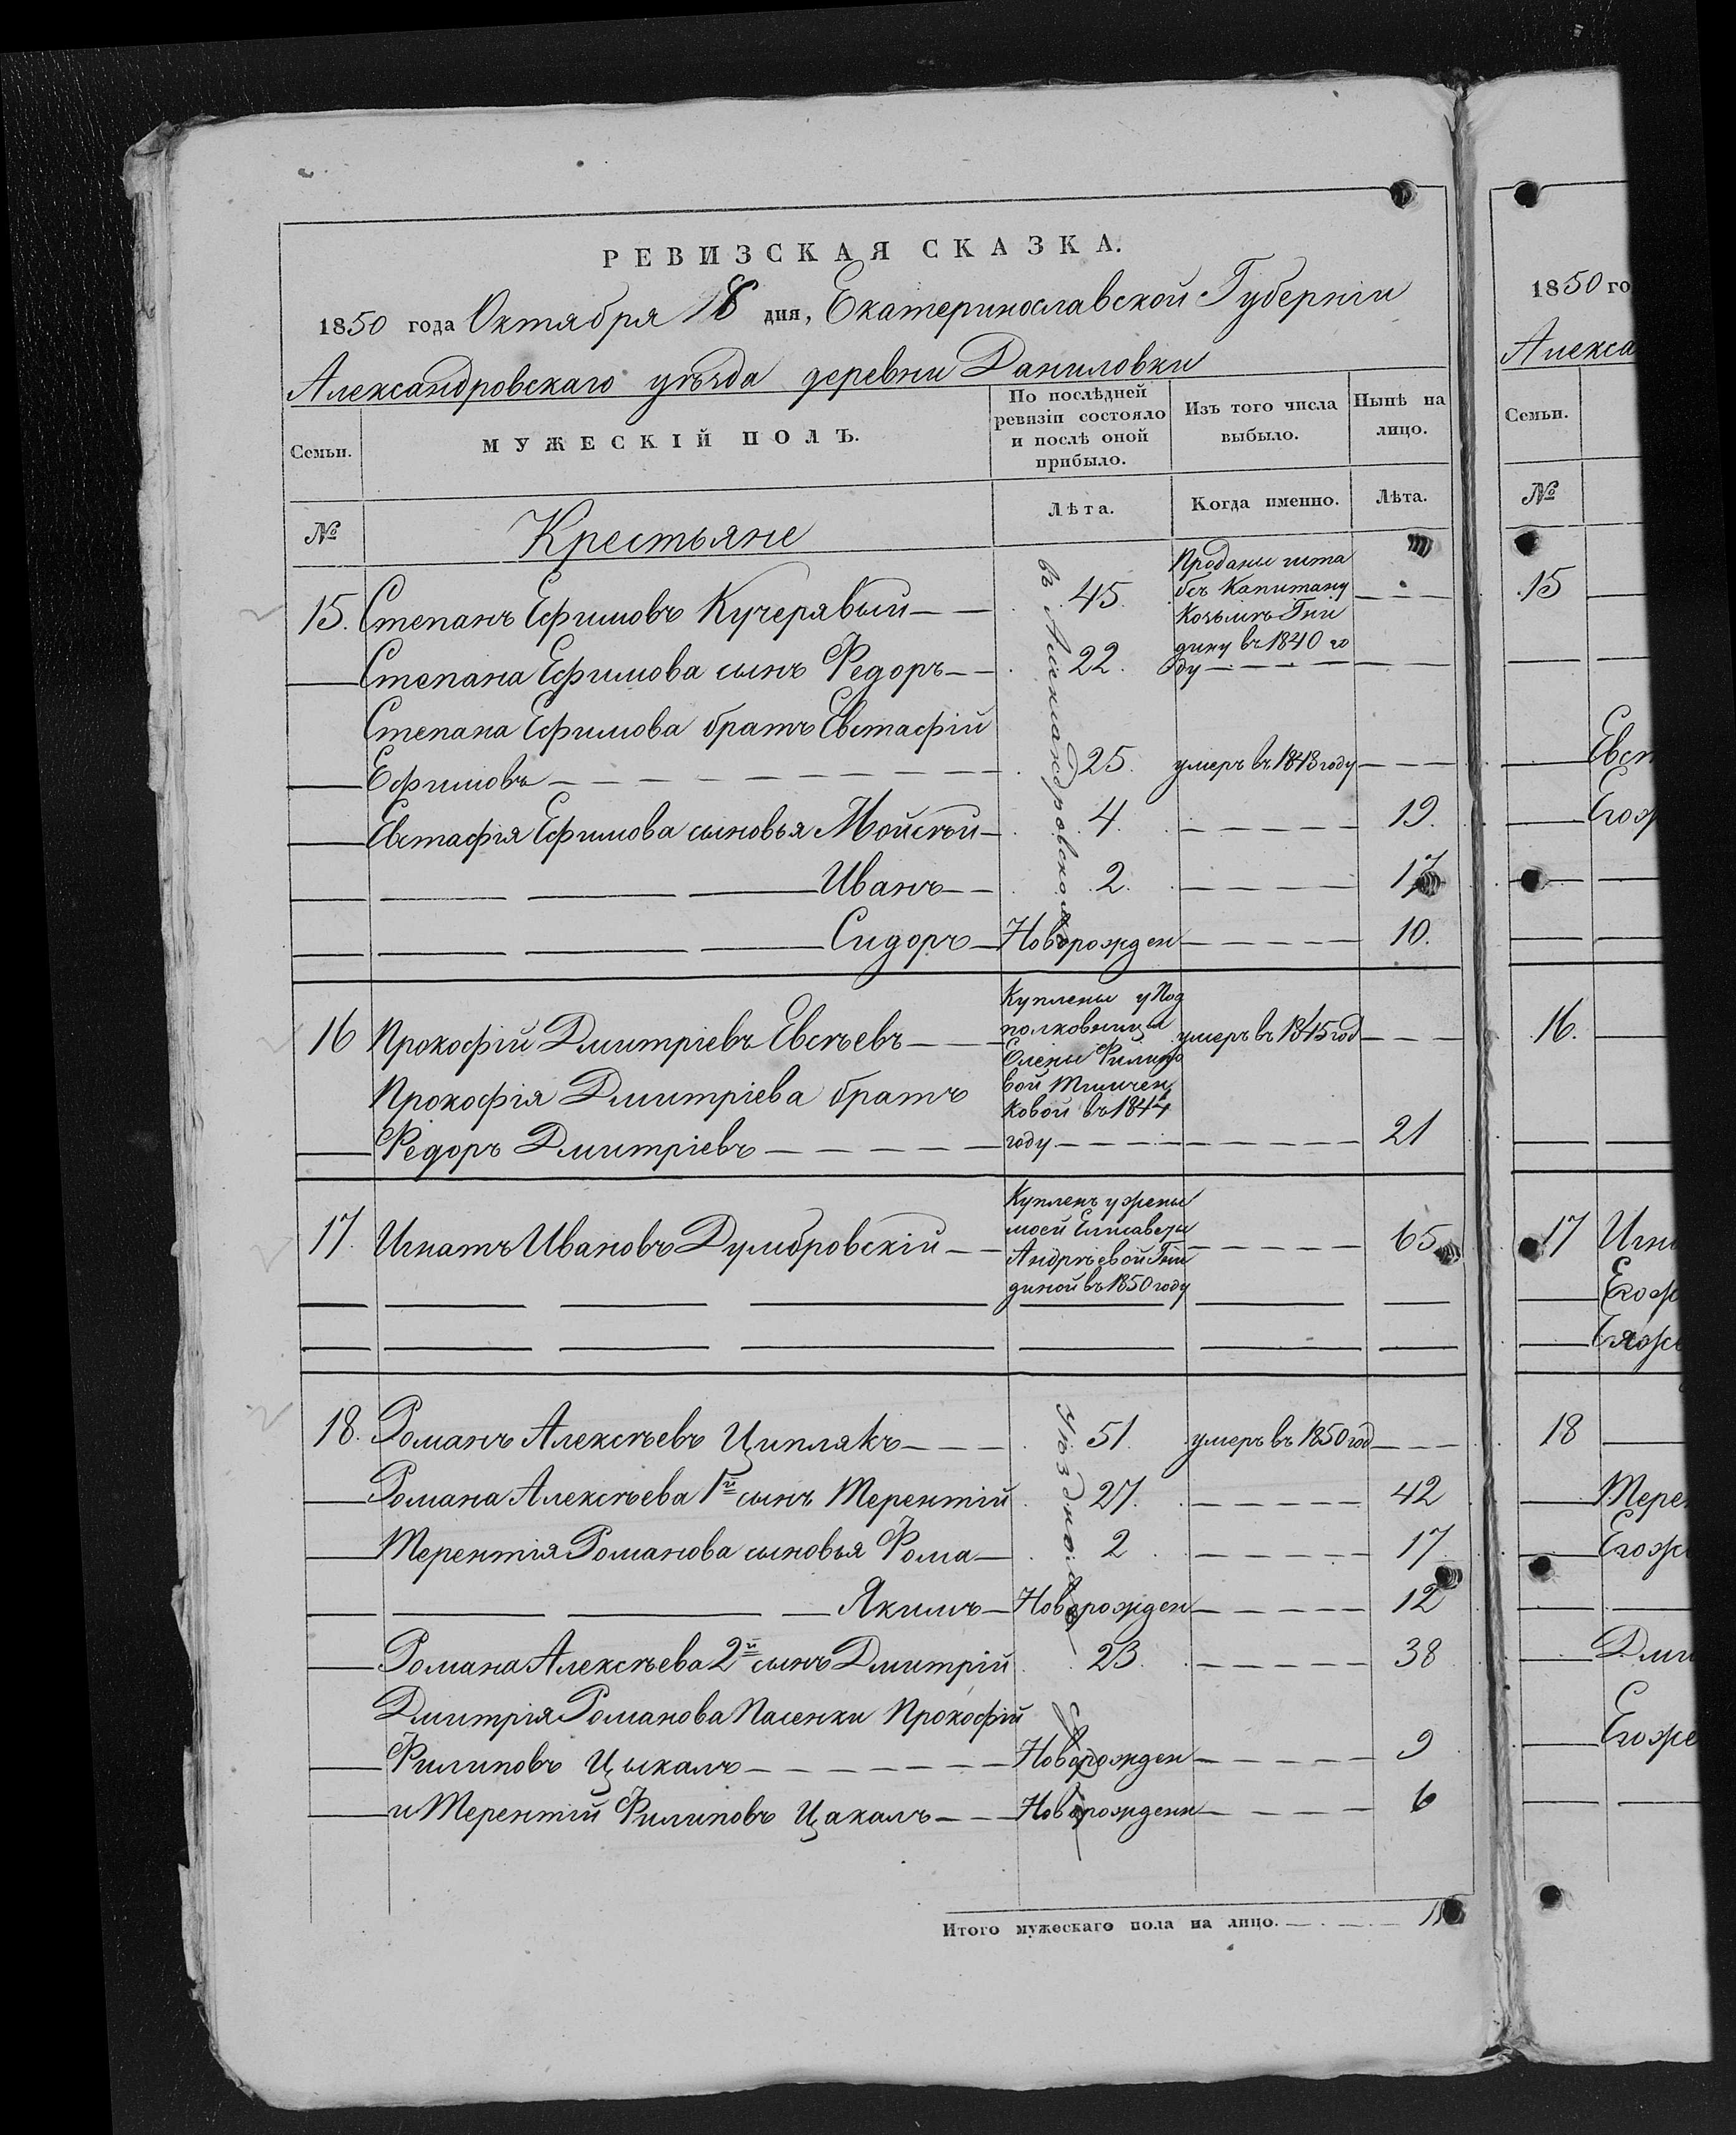 РЕВИЗСКАЯ СКАЗКА.
1850 года Октября 18 дня, Екатеринославской Губерніи
Александровскаго уѣзда деревни Даниловки
Семьи.
МУЖЕСКІЙ ПОЛЪ.
По послѣдней
ревизіи состояло
и послѣ оной
прибыло.
Изъ того числа
выбыло.
Нынѣ на
лицо.
№
Крестьяне
Лѣта.
Когда именно.
Лѣта.
15. Степанъ Ефимовъ Кучерявый 45.
Проданы шта
бсъ Капитану
Козьмѣ Гни
дину въ 1840 го
ду
Степана Ефимова сынъ Федоръ 22.
Степана Ефимова братъ Евстафій
Ефимовъ 25. умеръ въ 1843 году
Евстафія Ефимова сыновья Мойсѣй 4. 19.
Иванъ 2. 17
Сидоръ Новорожден 10.
16 Прокофій Дмитріевъ Евсѣевъ
Куплены у Под
полковницы
Елены Филипо
вой
ковой въ 1844
году
умеръ въ 1845 год
Прокофія Дмитріева братъ
Федоръ Дмитріевъ 21
17. Игнатъ Ивановъ Думбровскій
Купленъ у жены
моей Елисаветы
Андрѣевой Гни
диной въ 1850 году
65
18. Романъ Алексѣевъ Циплякъ 51. умеръ въ 1850 год
Романа Алексѣева 1й сынъ Терентій 27. 42
Терентія Романова сыновья Фома 2 17
Якимъ Новорожден 12
Романа Алексѣева 2й сынъ Дмитрій 23. 38
Дмитрія Романова Пасенки Прокофій
Филиповъ Цыкалъ Новорожден 9
и Терентій Филиповъ Цакалъ Новорожденн 6
въ Александровскомъ
Уѣздномъ
Судѣ
Итого мужескаго пола на лицо.
1850 го
Алекса
Семьи.
№
15
Евст
Егож
16.
17 Игна
Егож
18
Терен
Егож
Дми
Егоже